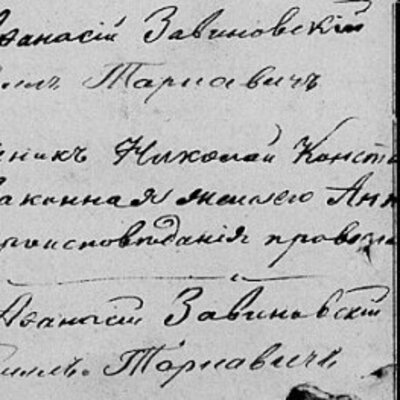 Аѳанасій Завиновскій
Тарнавичъ
Николай Конст
законная жена его Ант
роисповѣданія правос
Аѳанасій Завиновскій
Тарнавичъ